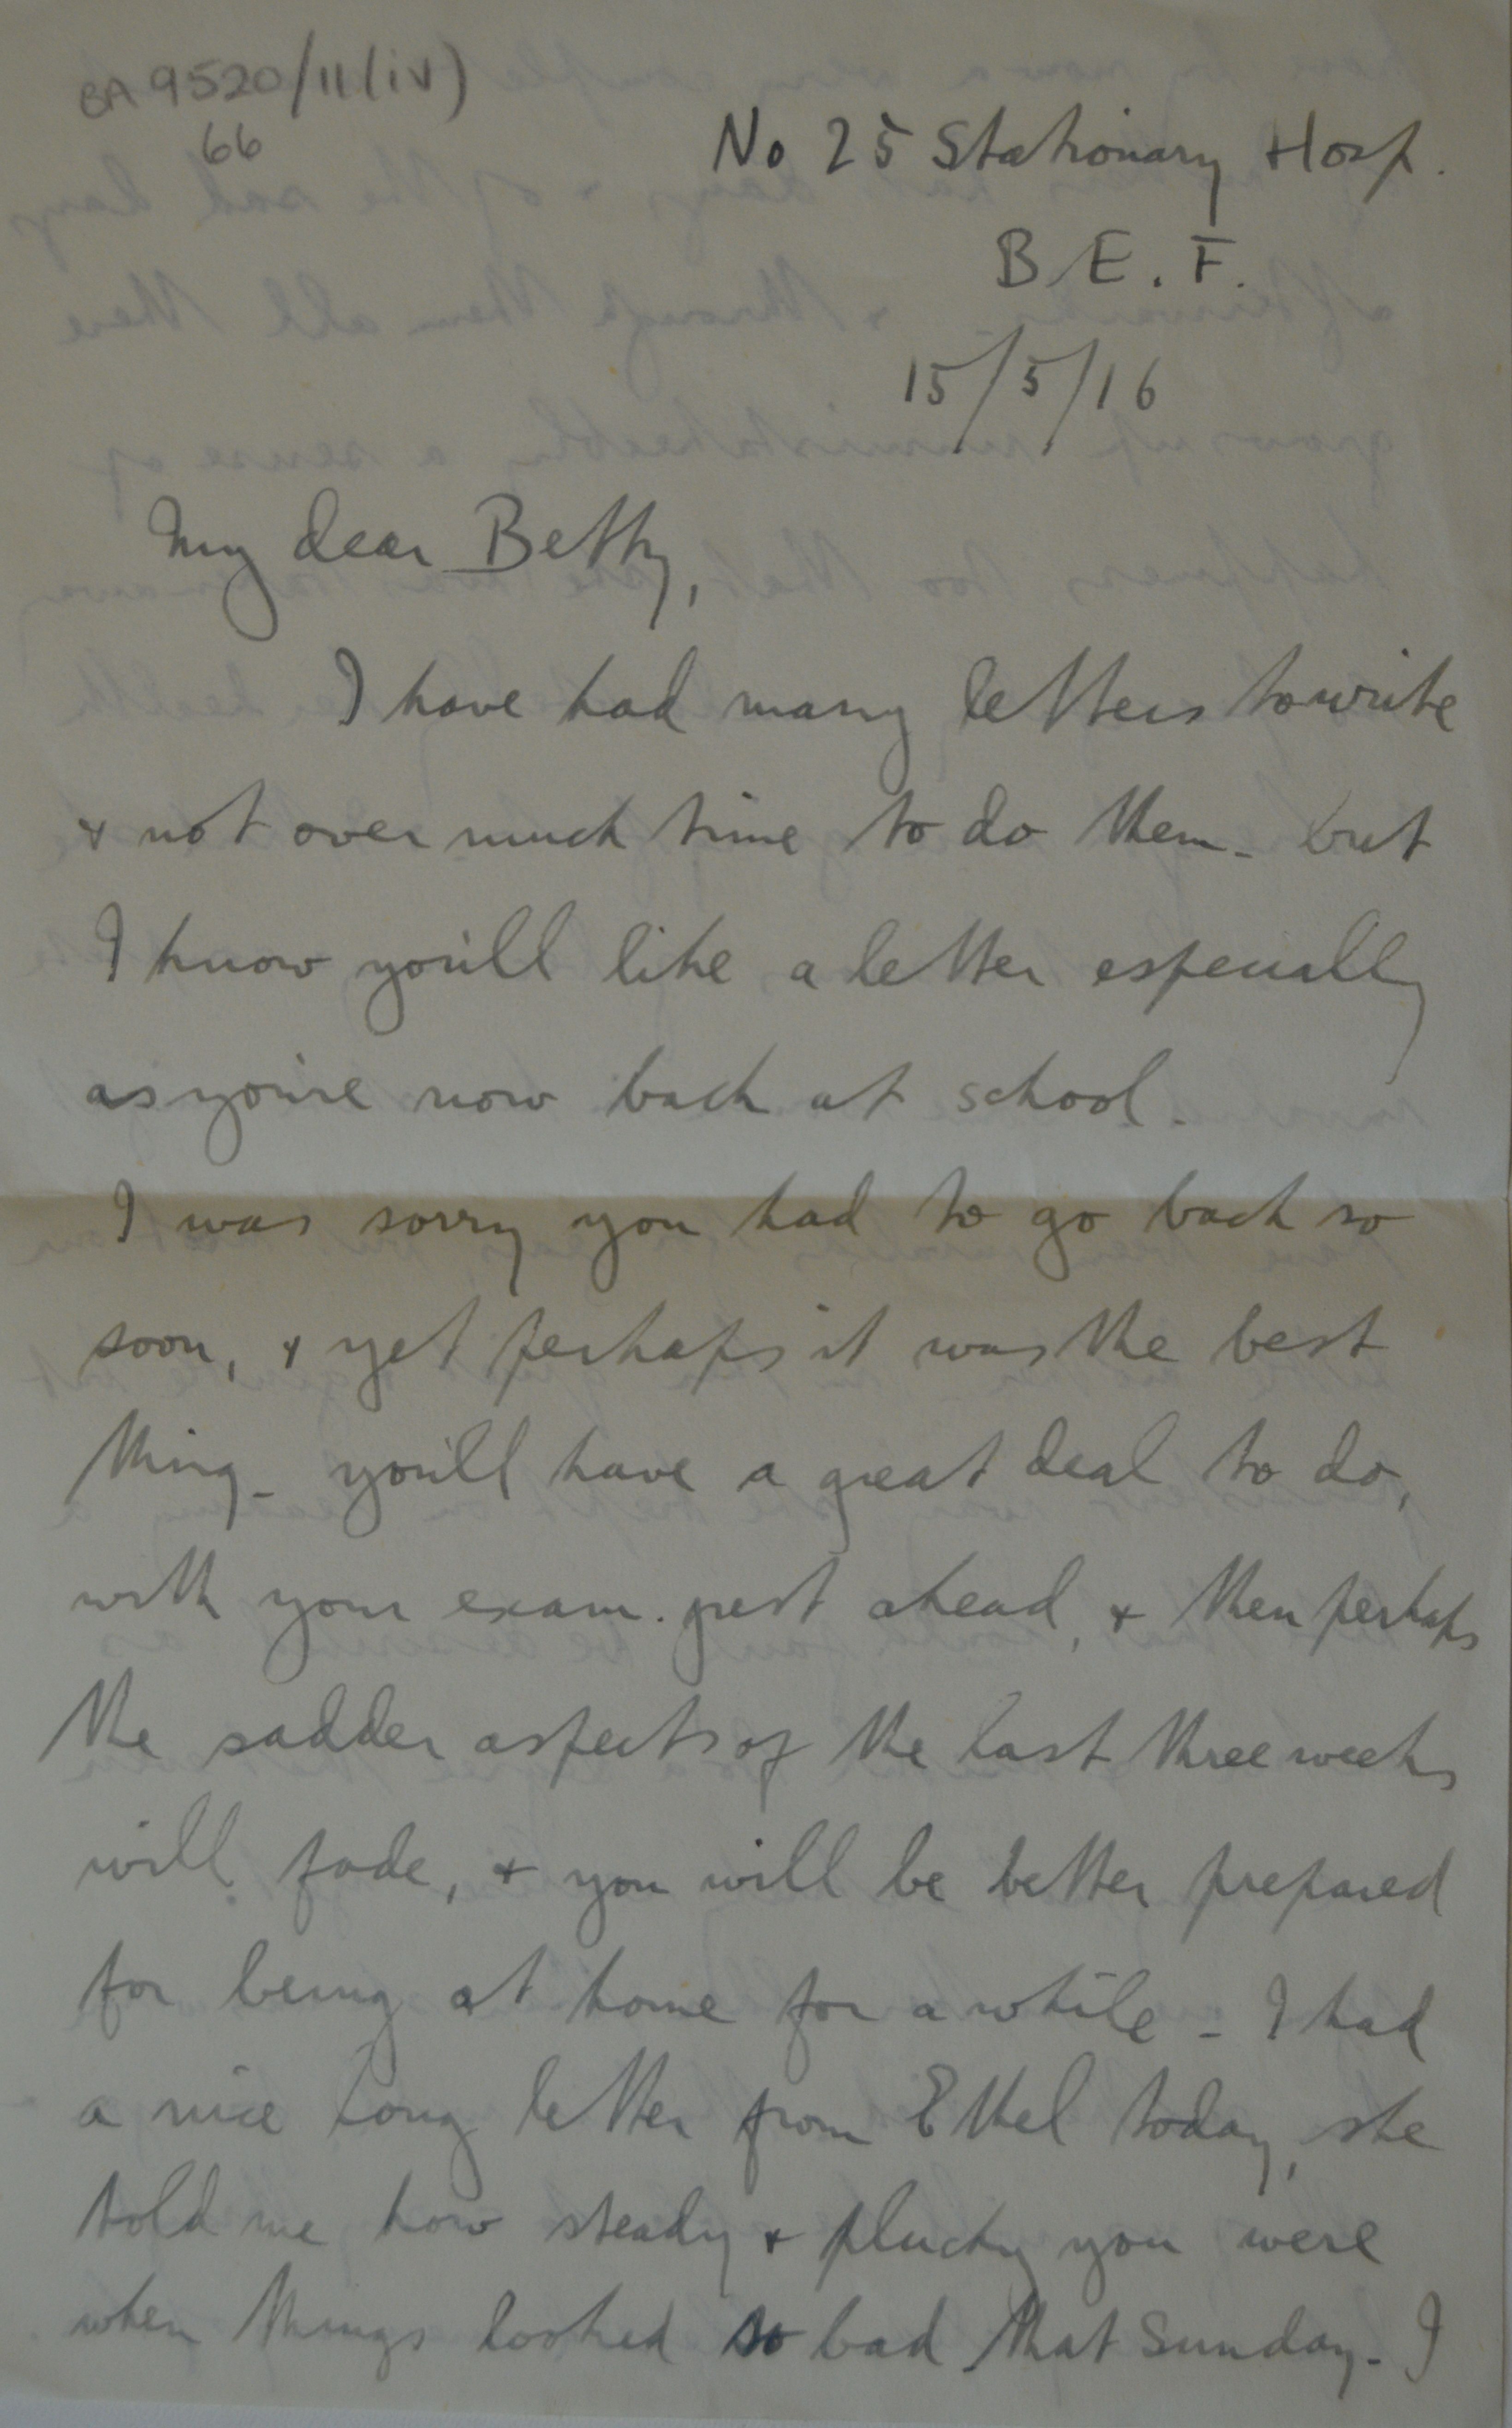 BA 9520/11(iv)
66
No 25 Stationary Hosp.
B.E.F.
15/5/16
My dear Betty,
I have had many letters to write
& not over much time to do them - but
I know you'll like a letter especially
as you're now back at school.
I was sorry you had to go back so
soon, & yet perhaps it was the best
thing - you'll have a great deal to do,
with your exam. just ahead, & then perhaps
the sadder aspects of the last three weeks
will fade, & you will be better prepared
for being at home for a while - I had
a nice long letter from Ethel today, she
told me how steady & plucky you were
when things looked so bad that Sunday - I